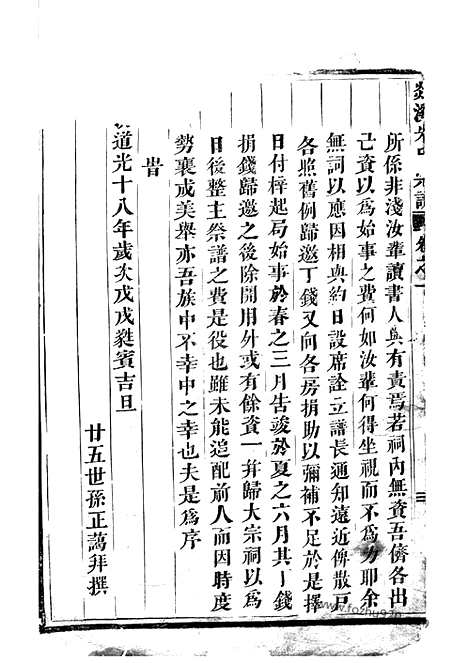 所係非淺汝輩讀書人與有責焉若祠內無資吾儕各出
己資以為始事之費何如汝輩何得坐視而不為力耶余
無詞以應因相與約日設席詮立譜長通知遠近俾散戸
各照舊例歸邀丁錢又向各房捐助以彌補不足於是擇
日付梓起局始事於春之三月告竣於夏之六月其丁錢
捐錢歸邀之後除開用外或有餘資一并歸大宗祠以為
日後整主祭譜之費是役也雖未能追配前人而因時度
勢襄成美舉亦吾族中不幸中之幸也夫是為序
旹
道光十八年歲次戊戌蕤賓吉旦
廿五世孫正藹拜撰
www.fozhu920.com